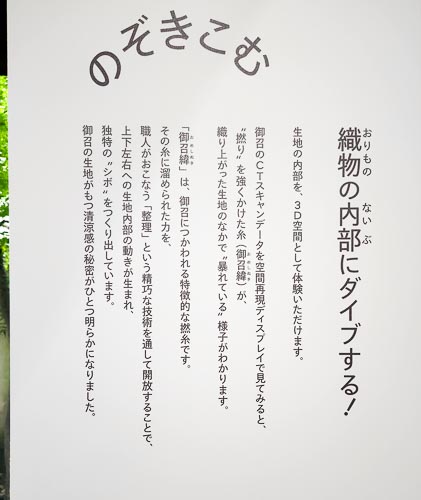 のぞきこむ
織物の内部にダイブする!
生地の内部を、3D空間として体験いただけます。
御召のCTスキャンデータを空間再現ディスプレイで見てみると、
“撚り”を強くかけた糸(御召緯)が、
織り上がった生地のなかで“暴れている”様子がわかります。
「御召緯」は、御召につかわれる特徴的な撚糸です。
その糸に溜められた力を、
職人がおこなう「整理」という精巧な技術を通して開放することで、
上下左右への生地内部の動きが生まれ、
独特の“シボ”をつくり出しています。
御召の生地がもつ清涼感の秘密がひとつ明らかになりました。